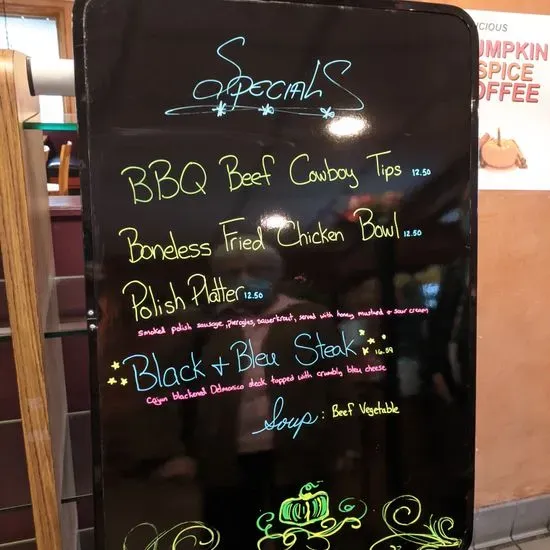 Specials
BBQ Beef Cowboy Tips 12.50
Boneless Fried Chicken Bowl 12.50
Polish Platter 12.50
Smoked polish sausage, pierogies, sauerkraut, served with honey mustard & sour cream
Black & Bleu Steak 16.59
Cajun blackened Delmonico steak topped with crumbly bleu cheese
Soup: Beef Vegetable
ICIOUS
UMPKIN
SPICE
OFFEE